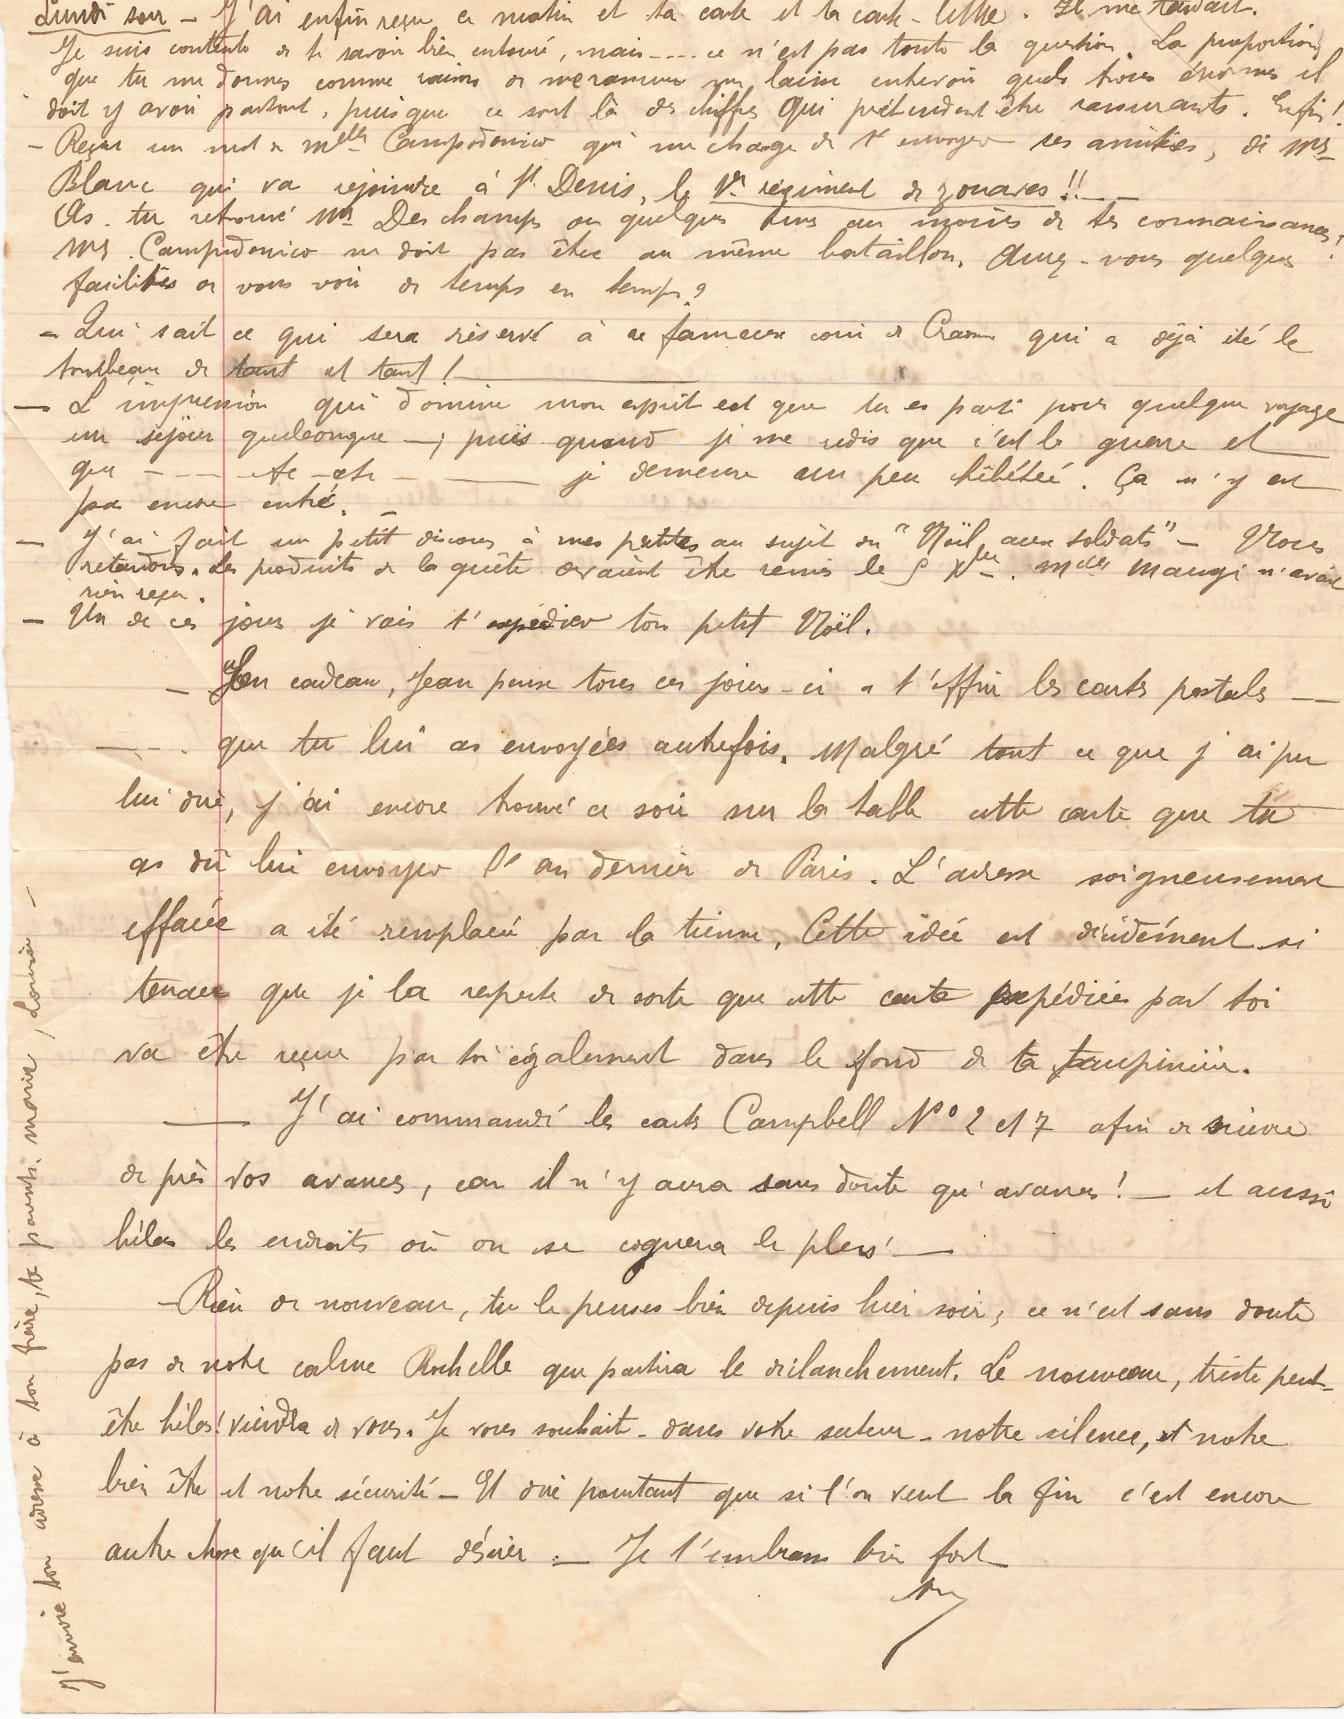 Lundi soir – J'ai enfin reçu ce matin et ta carte et ta carte-lettre. Il me tardait.
Je suis contente de te savoir bien entouré, mais---- ce n'est pas toute la question. La proportion
que tu me donnes comme raison de me rassurer me laisse entrevoir quels trous énormes il
doit y avoir partout, puisque ce sont là des chiffres qui prétendent être rassurants. Enfin!
– Reçu un mot de Melle Campodonico qui me charge de t'envoyer ses amitiés, de Mr
Blanc qui va rejoindre à St Denis, le 1er régiment de zouaves!!
As-tu retrouvé Mr Deschamps ou quelques uns au moins de tes connaissances?
Mr Campodonico ne doit pas être au même bataillon. Aurez-vous quelques
facilités de vous voir de temps en temps?
– Qui sait ce qui sera réservé à ce fameux coin de Craonne qui a déjà été le
tombeau de tant et tant!
– L'impression qui domine mon esprit est que tu es parti pour quelque voyage
un séjour quelconque –, puis quand je me redis que c'est la guerre et
que - - - - etc - etc - - je demeure un peu hébétée. Ça n'y est
pas encore entré. –
– J'ai fait un petit discours à mes petites au sujet du "Noël aux soldats" – Nous
retardons. Les produits de la quête devaient être remis le 5 Xbre. Melle Maugi n'avait
rien reçu.
– Un de ces jours je vais t'expédier ton petit Noël.
– En cadeau, Jean pense tous ces jours-ci à t'offrir les cartes postales –
– - - . que tu lui as envoyées autrefois. Malgré tout ce que j'ai pu
lui dire, j'ai encore trouvé ce soir sur la table cette carte que tu
as dû lui envoyer l'an dernier de Paris. L'adresse soigneusement
effacée a été remplacée par la tienne. Cette idée est décidément si
tendre que je la respecte de sorte que cette carte expédiée par toi
va être reçue par toi également dans le fond de ta taupinière.
– J'ai commandé les cartes Campbell No 2 et 7 afin de suivre
de près vos avances, car il n'y aura sans doute qu'avances! – et aussi
hélas les endroits où on se cognera le plus! –
– Rien de nouveau, tu le penses bien depuis hier soir, ce n'est sans doute
pas de notre calme Rochelle que partira le déclanchement. Le nouveau, triste peut-
être hélas! viendra de vous. Je vous souhaite - dans votre secteur - notre silence, et notre
bien être et notre sécurité – Et dire pourtant que si l'on veut la fin c'est encore
autre chose qu'il faut désirer. – Je t'embrasse bien fort
J'envoie ton adresse à ton frère, tes parents, Marie, Louise –